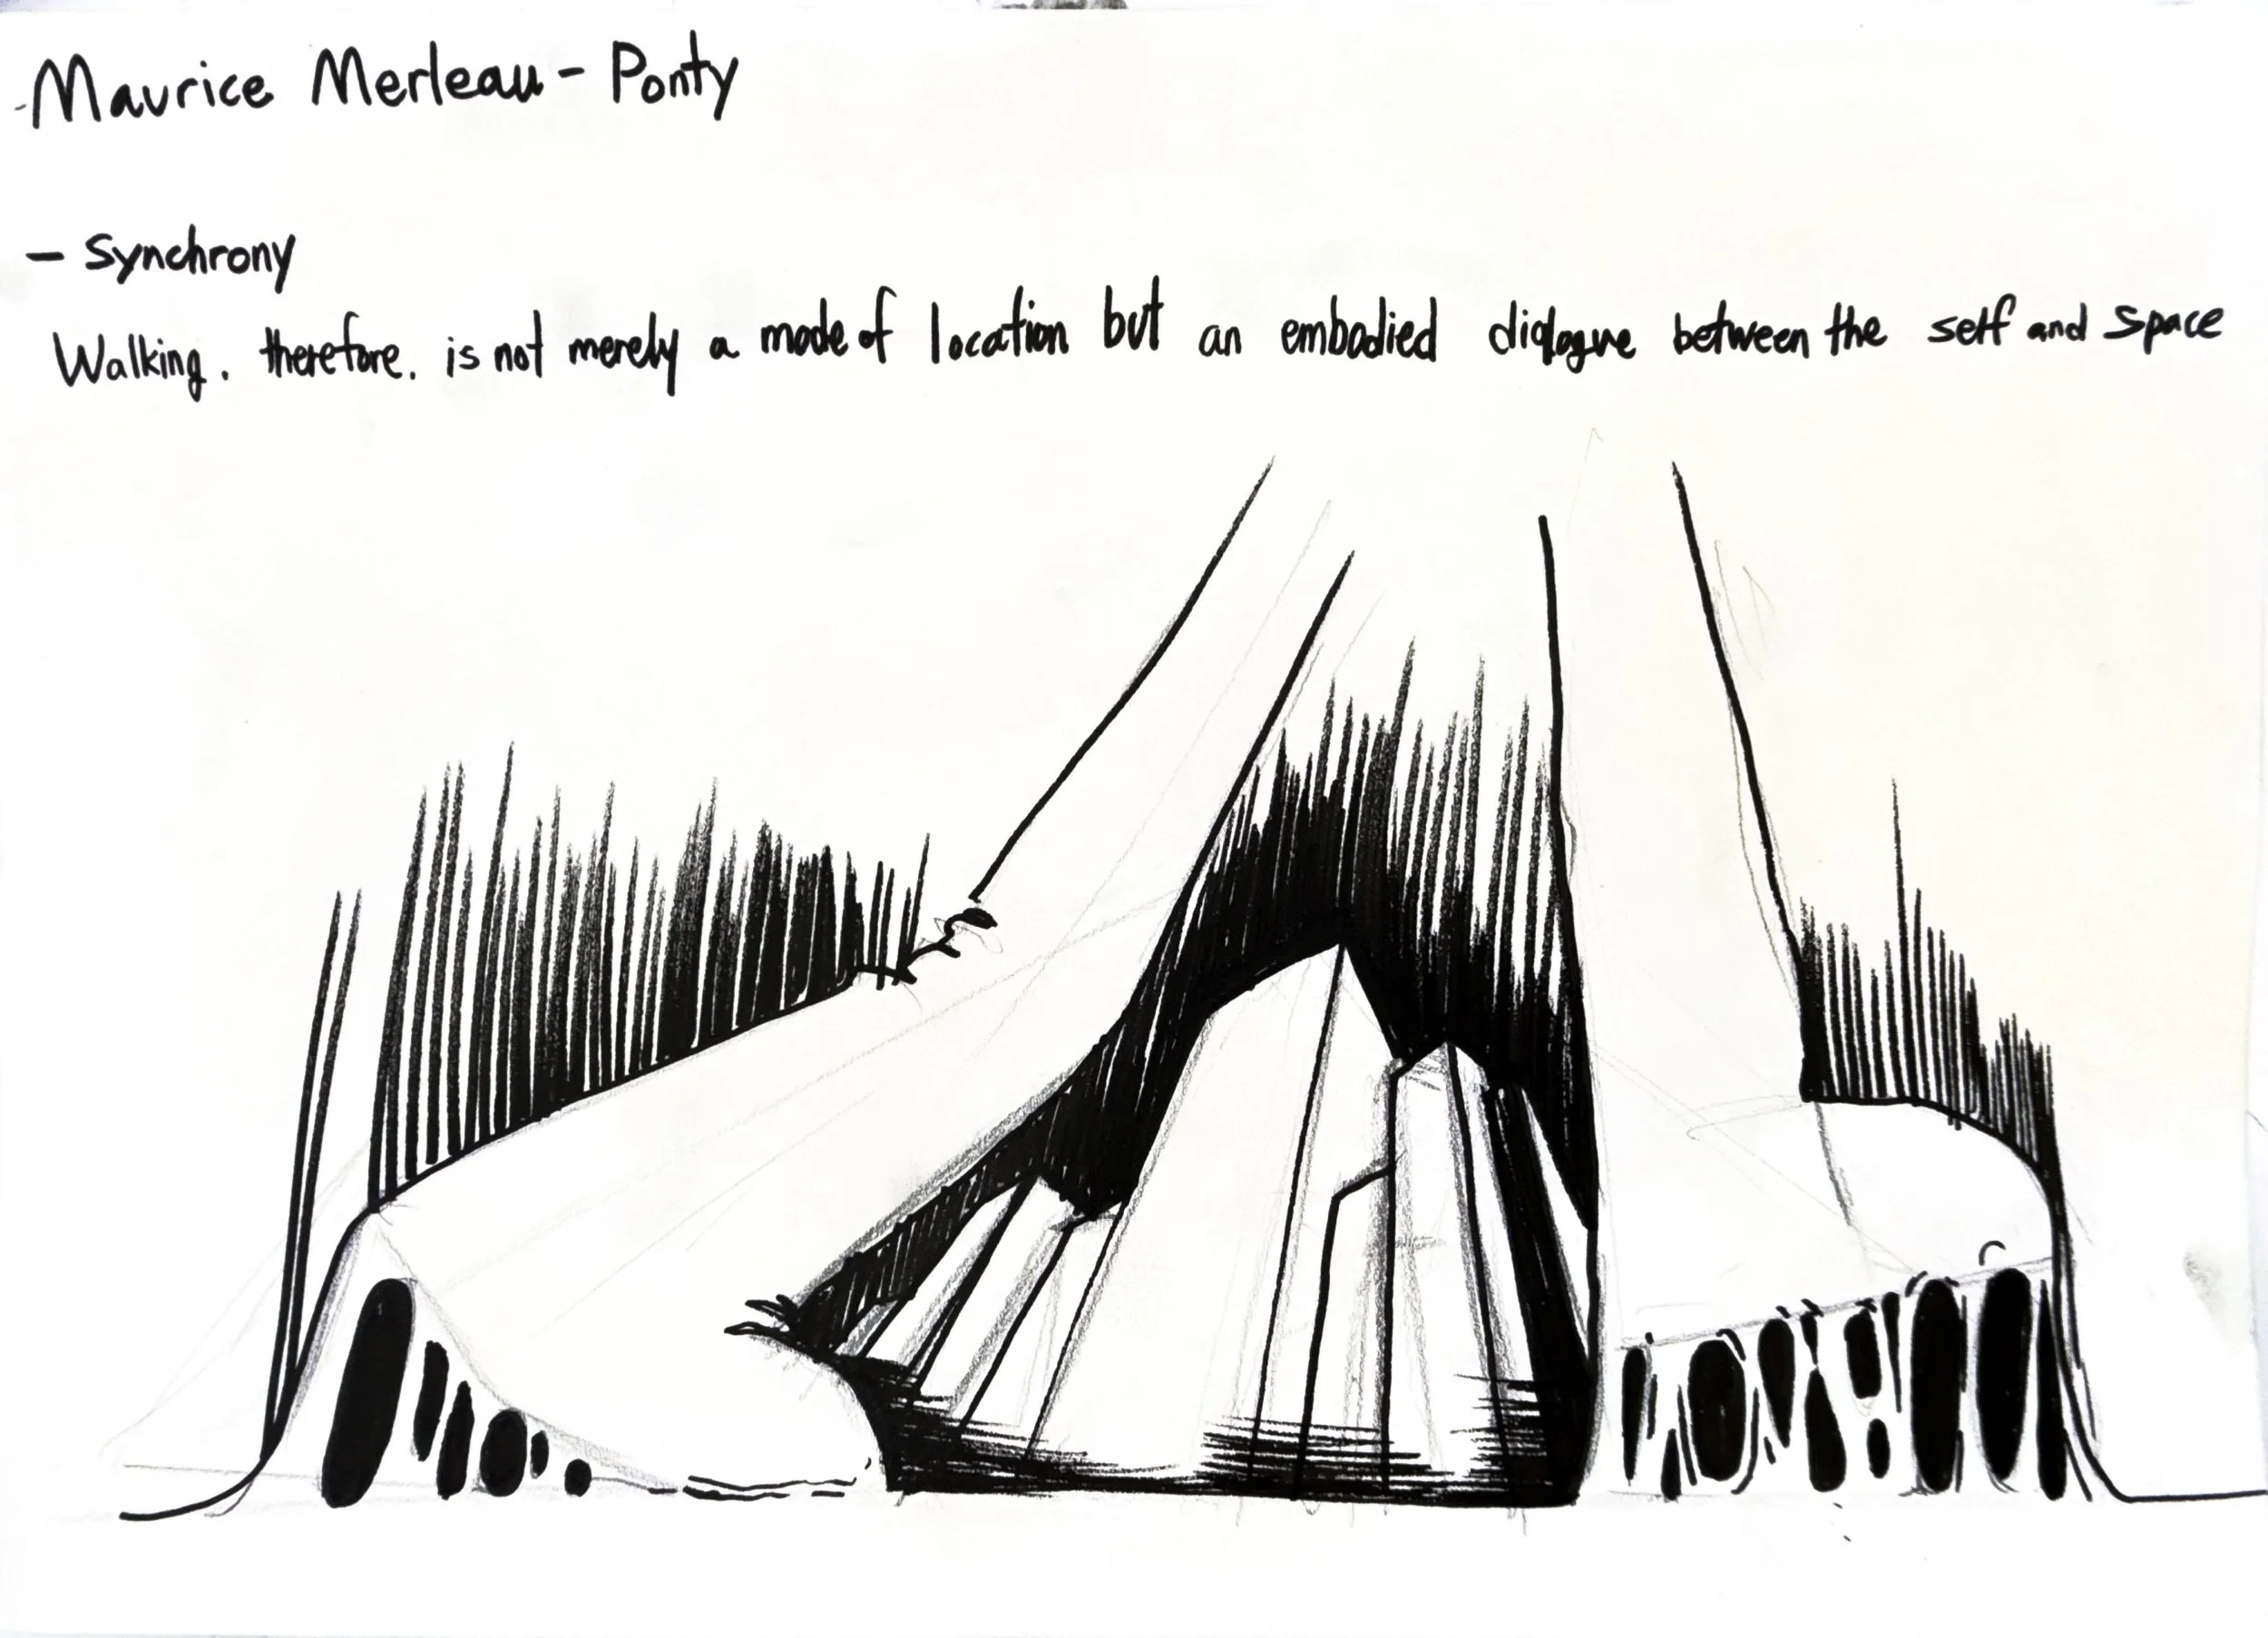 - Maurice Merleau - Ponty
- Synchrony
Walking. therefore. is not merely a mode of location but an embodied dialogue between the self and space